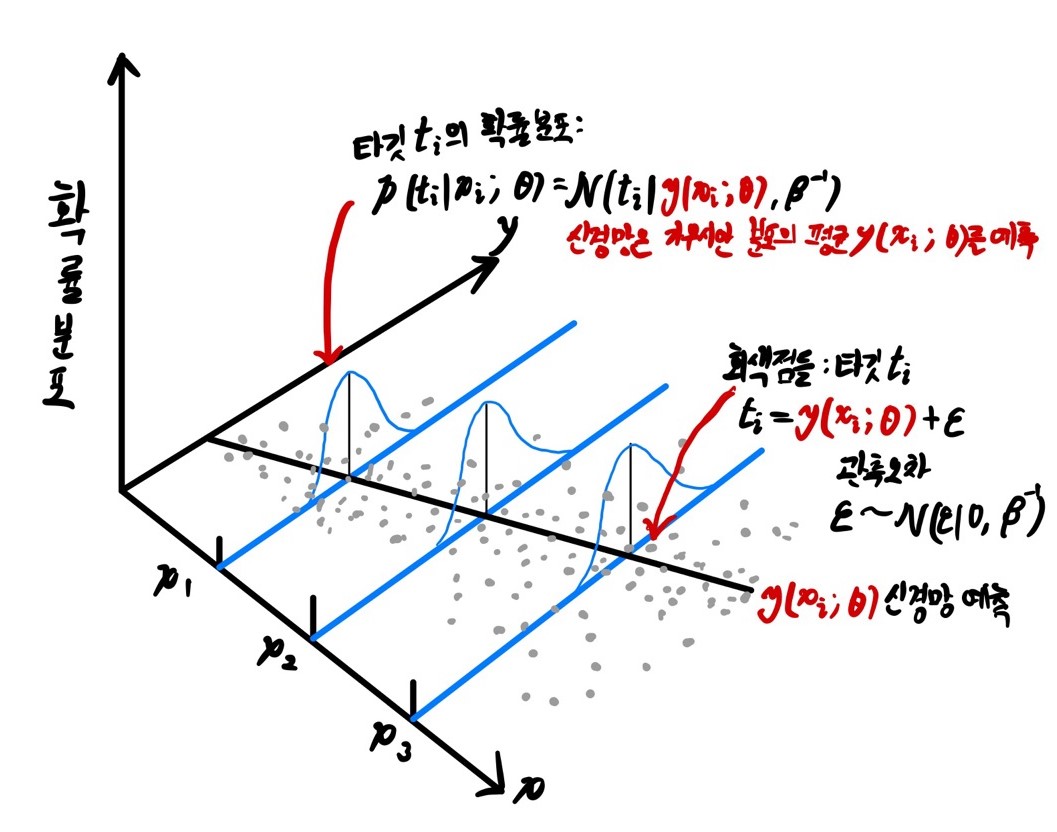 타깃 tᵢ의 확률분포:
p(tᵢ|xᵢ; θ) = N(tᵢ|y(xᵢ; θ), β⁻¹)
신경망은 가우시안 분포의 평균 y(xᵢ; θ)를 예측
y
확률분포
회색점들: 타깃 tᵢ
tᵢ = y(xᵢ; θ) + ε
관측오차
ε ~ N(ε|0, β⁻¹)
y(xᵢ; θ) 신경망 예측
x₁
x₂
x₃
x